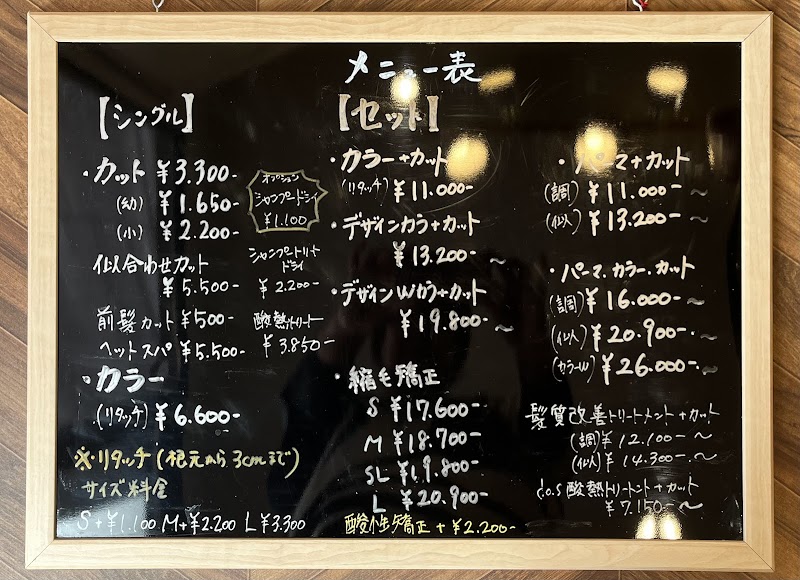 メニュー表
【シングル】
・カット ¥3.300-
(幼) ¥1.650
(小) ¥2.200-
オプション
シャンプードライ
¥1.100
似合わせカット
¥5.500-
シャンプートリート
ドライ
¥2.200-
前髪カット ¥500-
ヘットスパ ¥5.500-
酸熱トリート
¥3.850-
・カラー
(リタッチ) ¥6.600-
※・リタッチ(根元から3cmまで)
サイズ料金
S+¥1.100 M+¥2.200 L¥3.300
【セット】
・カラー+カット
(リタッチ) ¥11.000-
・デザインカラ+カット
¥13.200-~
・デザインWカラ+カット
¥19.800-~
・縮毛矯正
S ¥17.600-
M ¥18.700-
SL ¥19.800-
L ¥20.900-
酸性矯正+¥2.200-
・パーマ+カット
(調) ¥11.000-~
(似人) ¥13.200-~
・パーマ.カラー.カット
(調) ¥16.000-~
(似人) ¥20.900-.~
(カラーW) ¥26.000-.~
髪質改善トリートメント+カット
(調) ¥12.100-~
(似人) ¥14.300-.~
c.o.s酸熱トリートント+カット
¥7.150-~